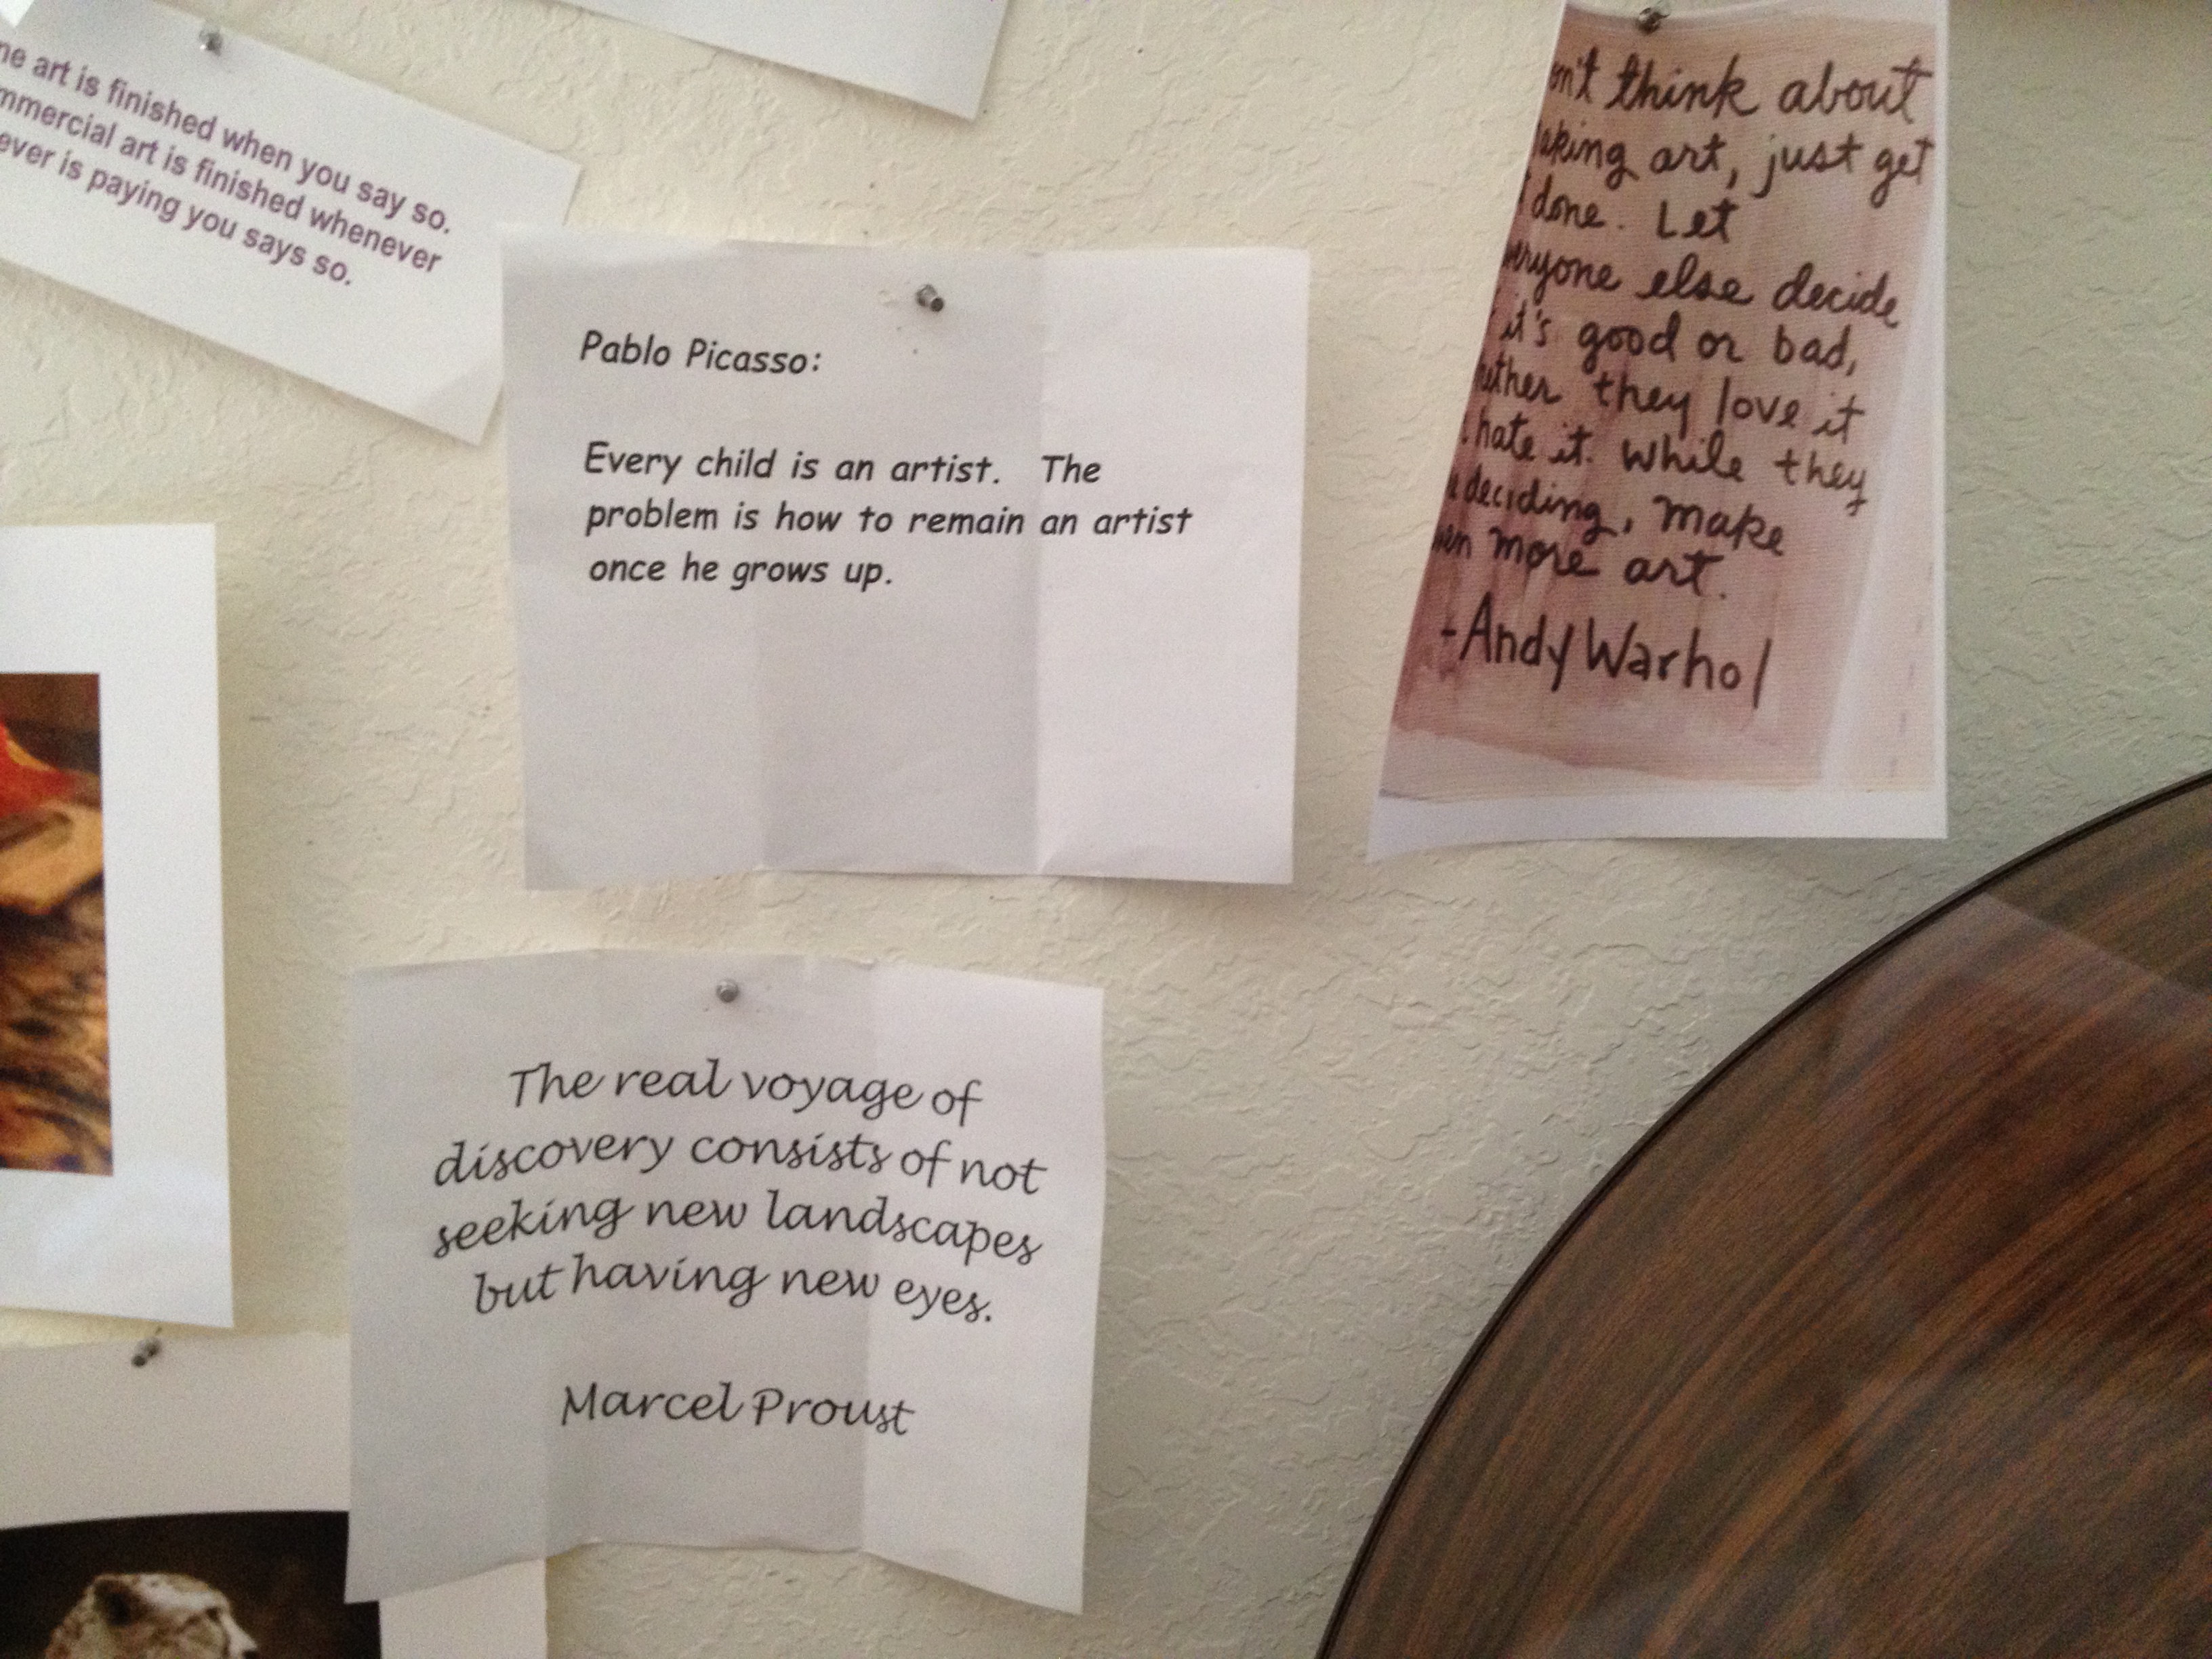 ne art is finished when you say so.
mmercial art is finished whenever
ever is paying you says so.
Pablo Picasso:
Every child is an artist. The
problem is how to remain an artist
once he grows up.
n't think about
aking art, just get
done. Let
eryone else decide
it's good or bad,
ether they love it
hate it. While they
e deciding, make
en more art.
-Andy Warhol
The real voyage of
discovery consists of not
seeking new landscapes
but having new eyes.
Marcel Proust